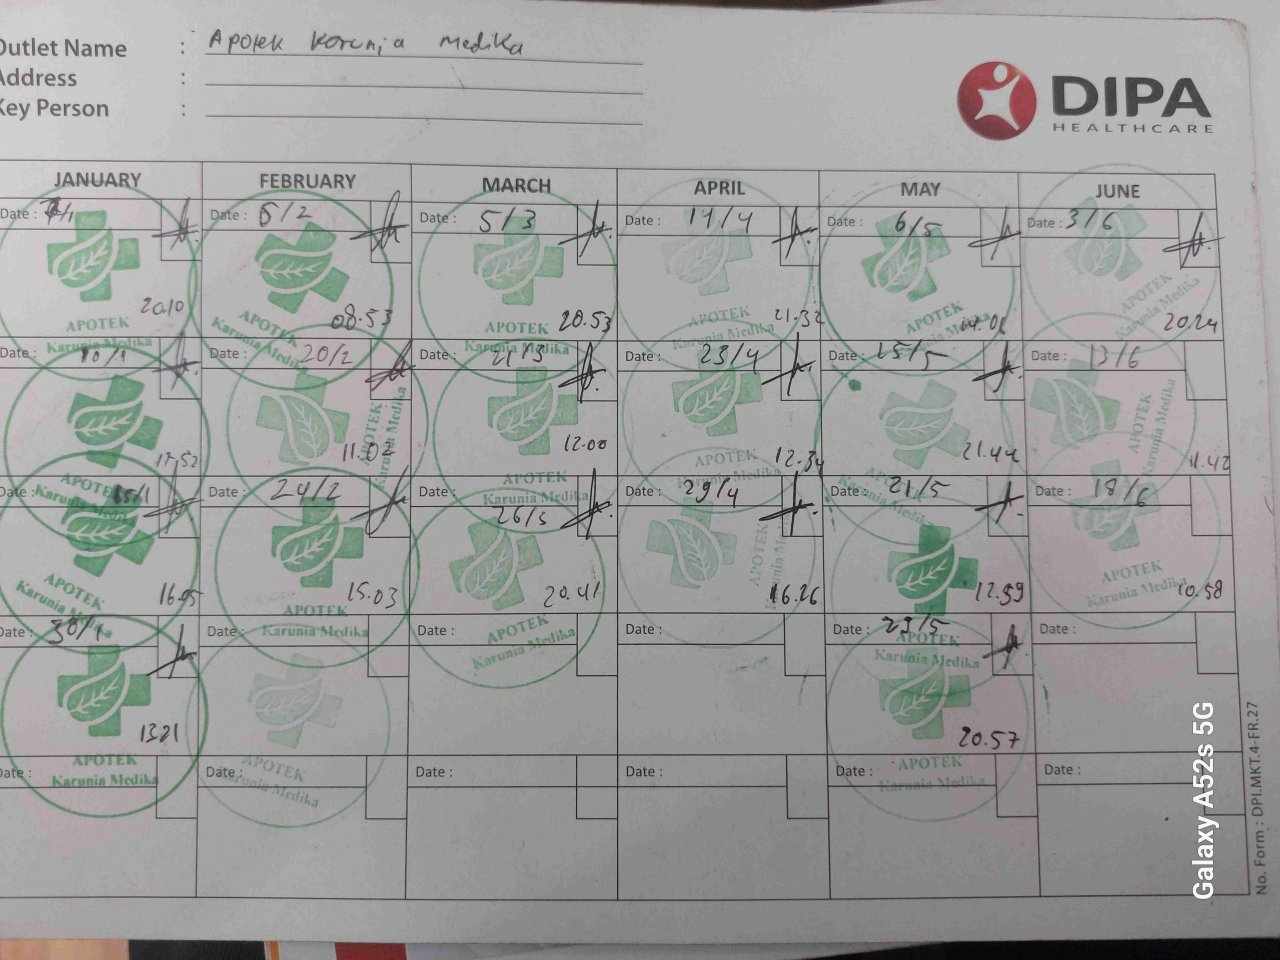 Outlet Name : Apotek Karunia Medika
Address :
Key Person :
DIPA
HEALTHCARE
JANUARY FEBRUARY MARCH APRIL MAY JUNE
Date : Date : 6/2 Date : 5/3 Date : 14/4 Date : 6/5 Date : 3/6
20.10 08.53 20.53 21.32 20.24
APOTEK Karunia Medika APOTEK Karunia Medika APOTEK Karunia Medika APOTEK Karunia Medika APOTEK Karunia Medika APOTEK Karunia Medika
Date : 10/1 Date : 20/2 Date : 21/3 Date : 23/4 Date : 15/5 Date : 13/6
17.52 11.02 12.00 12.34 21.44 11.42
APOTEK Karunia Medika APOTEK Karunia Medika APOTEK Karunia Medika APOTEK APOTEK Karunia Medika APOTEK Karunia Medika
Date : 15/1 Date : 24/2 Date : 26/3 Date : 29/4 Date : 21/5 Date : 18/6
15.03 20.41 16.26 12.59 10.58
APOTEK Karunia Medika APOTEK Karunia Medika APOTEK Karunia Medika APOTEK APOTEK Karunia Medika APOTEK Karunia Medika
Date : 30/1 Date : Date : Date : Date : 29/5 Date :
13.21 20.57
APOTEK Karunia Medika APOTEK Karunia Medika APOTEK Karunia Medika
Date : Date : Date : Date : Date : Date :
No. Form : DPI.MKT.4-FR.27
Galaxy A52s 5G